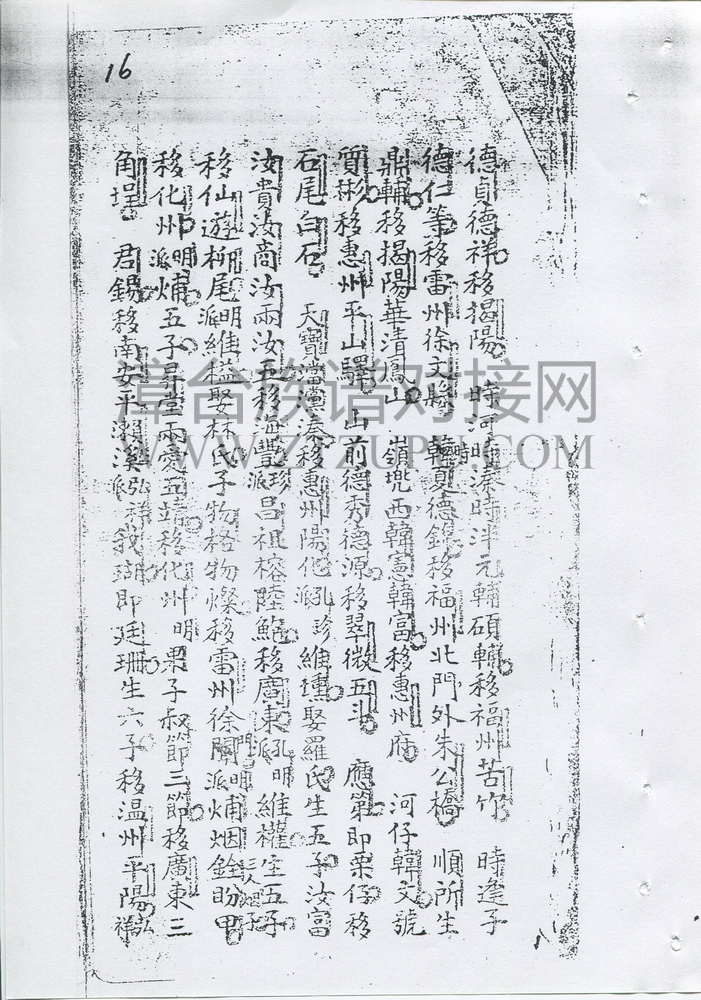 16
德貞德祥移揭陽 時河時溱時泮元輔碩輔移福州苦竹 時逢子
德仁等移雷州徐文縣 韓夏德錦移福州北門外朱公橋 順所生
鼎輔移揭陽華清鳳山 嶺兜西韓憲韓富移惠州府 河仔韓文號
質彬移惠州平山驛 山前德秀德源移翠微五斗 應第即栗仔移
石尾白石 天寶溱移惠州陽化派孔珍維壎娶羅氏生五子汝富
汝貴汝商汝雨汝五移海豐派珍呂祖榕陸鮑移廣東派孔明維權生五子
移仙遊柳尾派明維楹娶林氏子物格物燦移雷州徐聞派明烟銓盼甲
移化州派明烳五子昇堂兩愛五靖移化州明栗子叔節三節移廣東三
角埕 君錫移南安平瀨溪派弘祥我瑚即廷珊生六子移温州平陽弘祥
漳台族谱对接网
WWW.ZTZUPU.COM